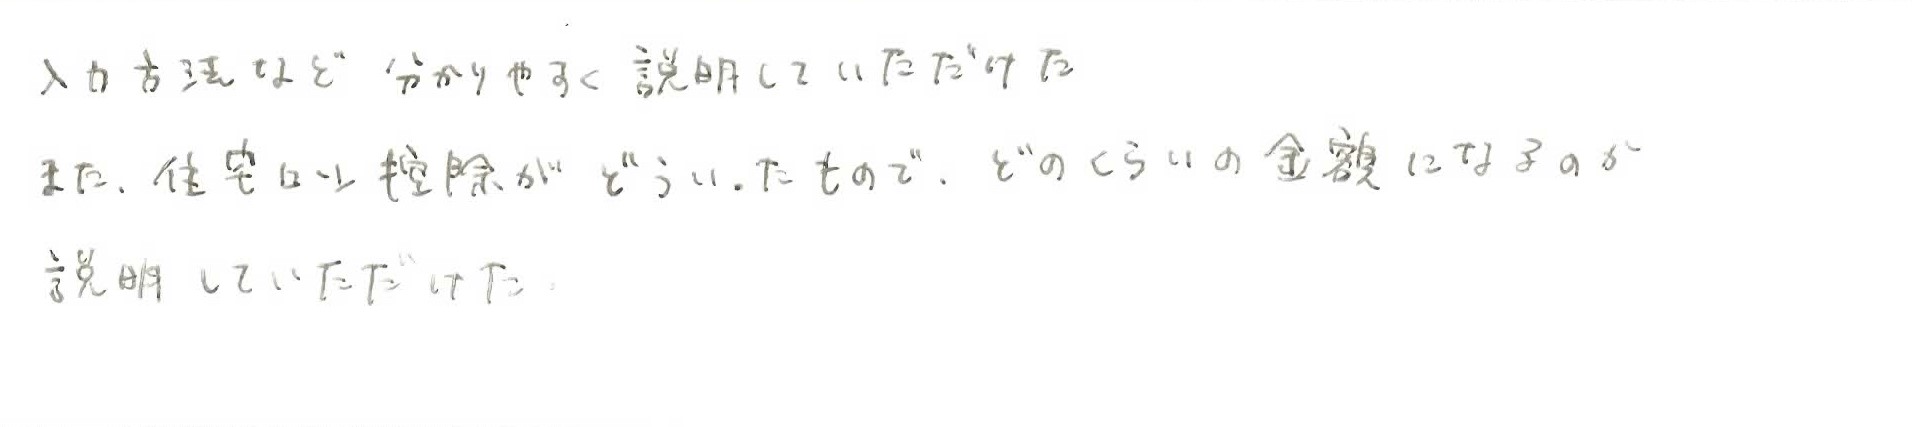 入力方法など分かりやすく説明していただけた
また、住宅ローン控除がどういったもので、どのくらいの金額になるのか
説明していただけた。